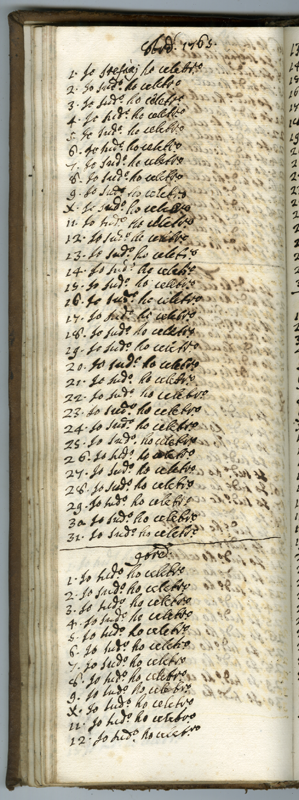 8bre. 1765.
1. Io stefaj ho celebro
2. Io sudo. ho celebro
3. Io sudo. ho celebro
4. Io sudo. ho celebro
5. Io sudo. ho celebro
6. Io sudo. ho celebro
7. Io sudo. ho celebro
8. Io sudo. ho celebro
9. Io sudo. ho celebro
X. Io sudo. ho celebro
11. Io sudo. ho celebro
12. Io sudo. ho celebro
13. Io sudo. ho celebro
14. Io sudo. ho celebro
15. Io sudo. ho celebro
16. Io sudo. ho celebro
17. Io sudo. ho celebro
18. Io sudo. ho celebro
19. Io sudo. ho celebro
20. Io sudo. ho celebro
21. Io sudo. ho celebro
22. Io sudo. ho celebro
23. Io sudo. ho celebro
24. Io sudo. ho celebro
25. Io sudo. ho celebro
26. Io sudo. ho celebro
27. Io sudo. ho celebro
28. Io sudo. ho celebro
29. Io sudo. ho celebro
30 Io sudo. ho celebro
31. Io sudo. ho celebro
9bre.
1. Io sudo. ho celebro
2. Io sudo. ho celebro
3. Io sudo. ho celebro
4. Io sudo. ho celebro
5. Io sudo. ho celebro
6. Io sudo. ho celebro
7. Io sudo. ho celebro
8. Io sudo. ho celebro
9. Io sudo. ho celebro
X. Io sudo. ho celebro
11. Io sudo. ho celebro
12. Io sudo. ho celebro